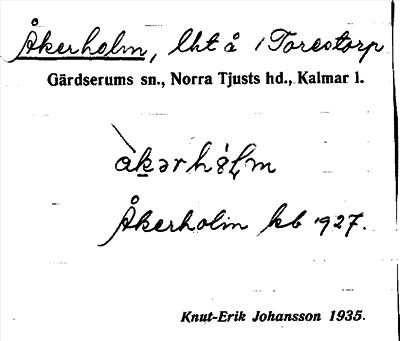 Åkerholm, lht å i Torestorp
Gärdserums sn., Norra Tjusts hd., Kalmar l.
Åkerholm kb 1927.
Knut-Erik Johansson 1935.